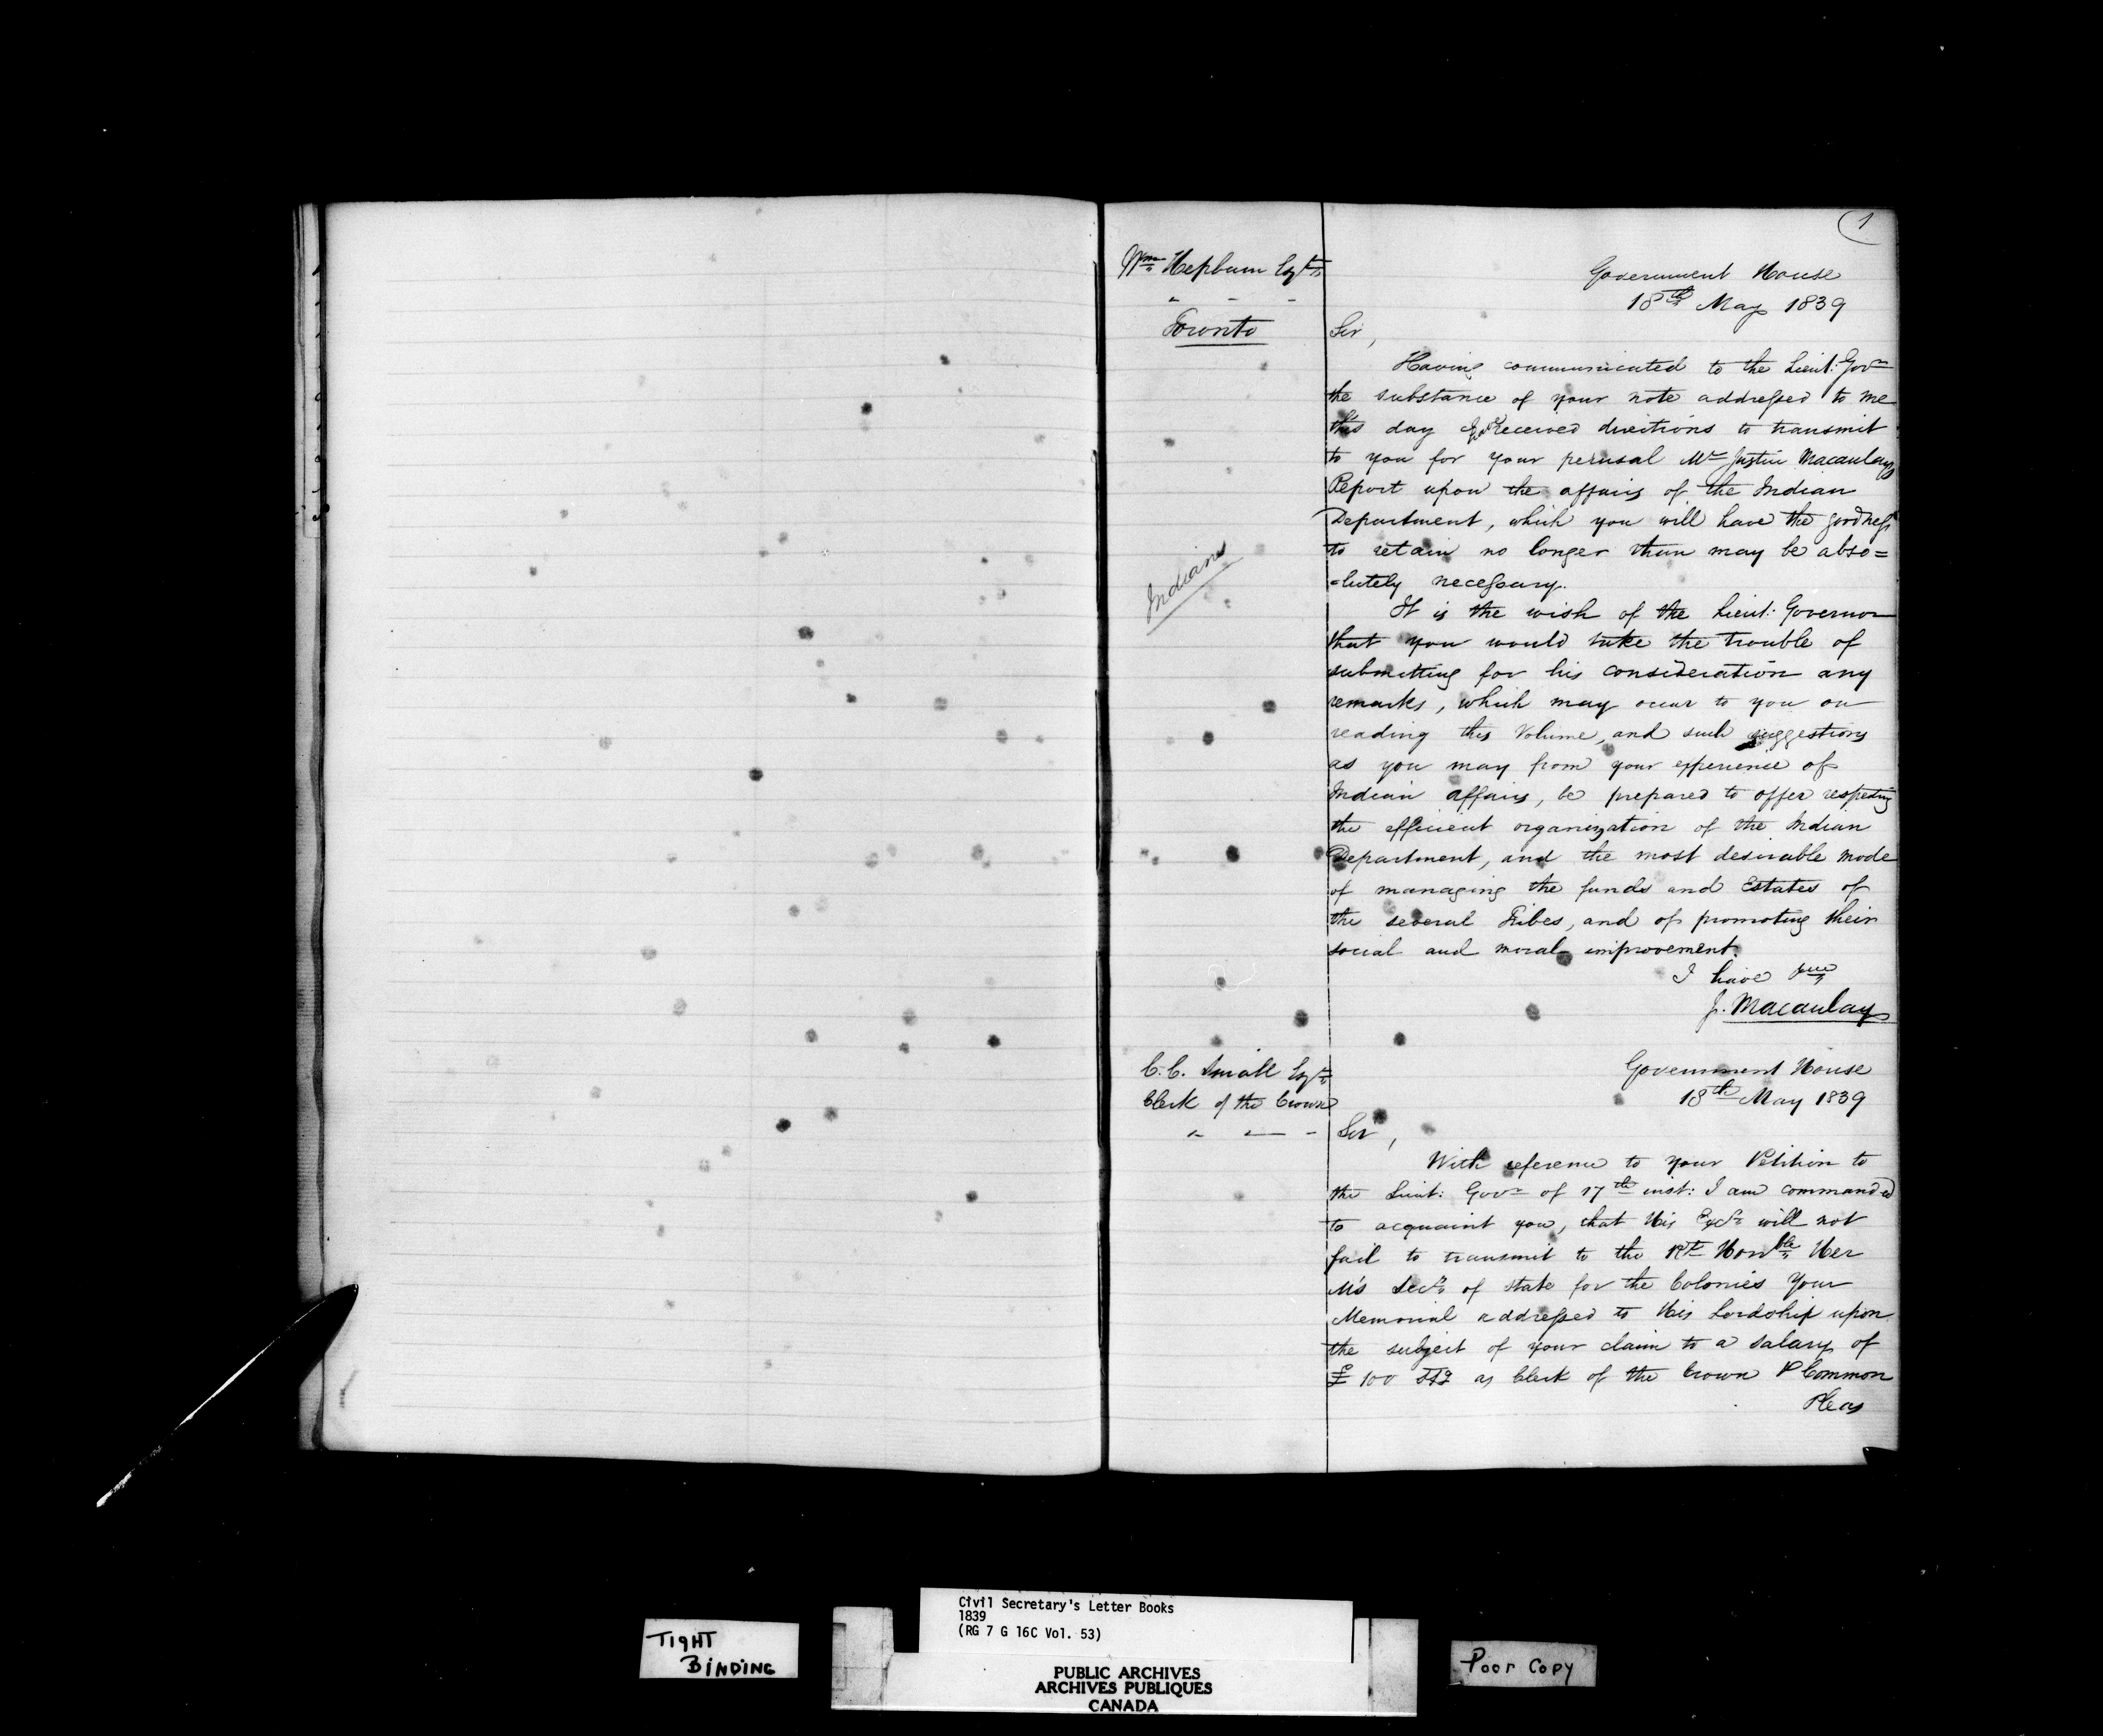 1
Wm Hepburn Esqr
Toronto
Government House
18th May 1839
Sir,
Having communicated to the Lieut: Govr
the substance of your note addressed to me
this day I have received directions to transmit
to you for your perusal Mr Justice Macaulays
Report upon the affairs of the Indian
Department, which you will have the goodness
to retain no longer than may be abso=
=lutely necessary.
Indians
It is the wish of the Lieut: Governor
that you would take the trouble of
submitting for his consideration any
remarks, which may occur to you on
reading this Volume, and such suggestions
as you may from your experience of
Indian affairs, be prepared to offer respecting
the efficient organization of the Indian
Department, and the most desirable mode
of managing the funds and Estates of
the several Tribes, and of promoting their
social and moral improvement.
I have
J. Macaulay
C.C. Small Esqr
Clerk of the Crown
Government House
18th May 1839
Sir,
With reference to your Petition to
the Lieut: Govr of 17th inst: I am commanded
to acquaint you, that His Excy will not
fail to transmit to the Rt Honble Her
M's Secy of state for the Colonies Your
Memorial addressed to His Lordship upon
the subject of your claim to a salary of
£100 Stg as Clerk of the Crown & Common
Pleas
TIGHT
BINDING
Civil Secretary's Letter Books
1839
(RG 7 G 16C Vol. 53)
PUBLIC ARCHIVES
ARCHIVES PUBLIQUES
CANADA
Poor Copy